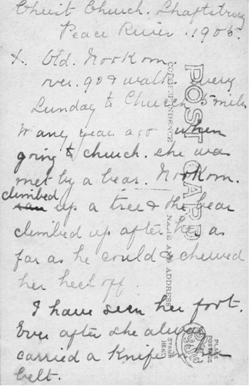 Christ Church. Shaftesbury
Peace River. 1905.
X. Old. Nookom
over. 90 & walked every
Sunday to Church 5 miles
Many years ago when
going to church. she was
met by a bear. Nookom.
climbed
ran up a tree & the bear
climbed up after her as
far as he could & chewed
her heel off.
I have seen her foot.
Ever after she always
carried a knife in her
belt.
POST CARD